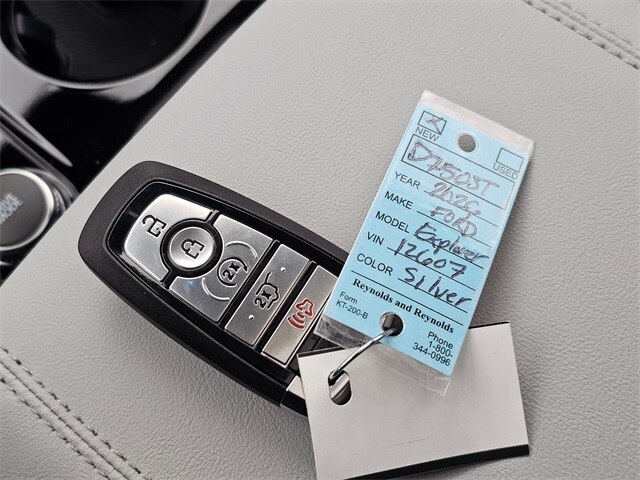 NEW
USED
D7503T
YEAR
MAKE FORD
MODEL Explorer
VIN 12607
COLOR Silver
Reynolds and Reynolds
Form
KT-200-B
Phone
1-800-
344-0996
MODE